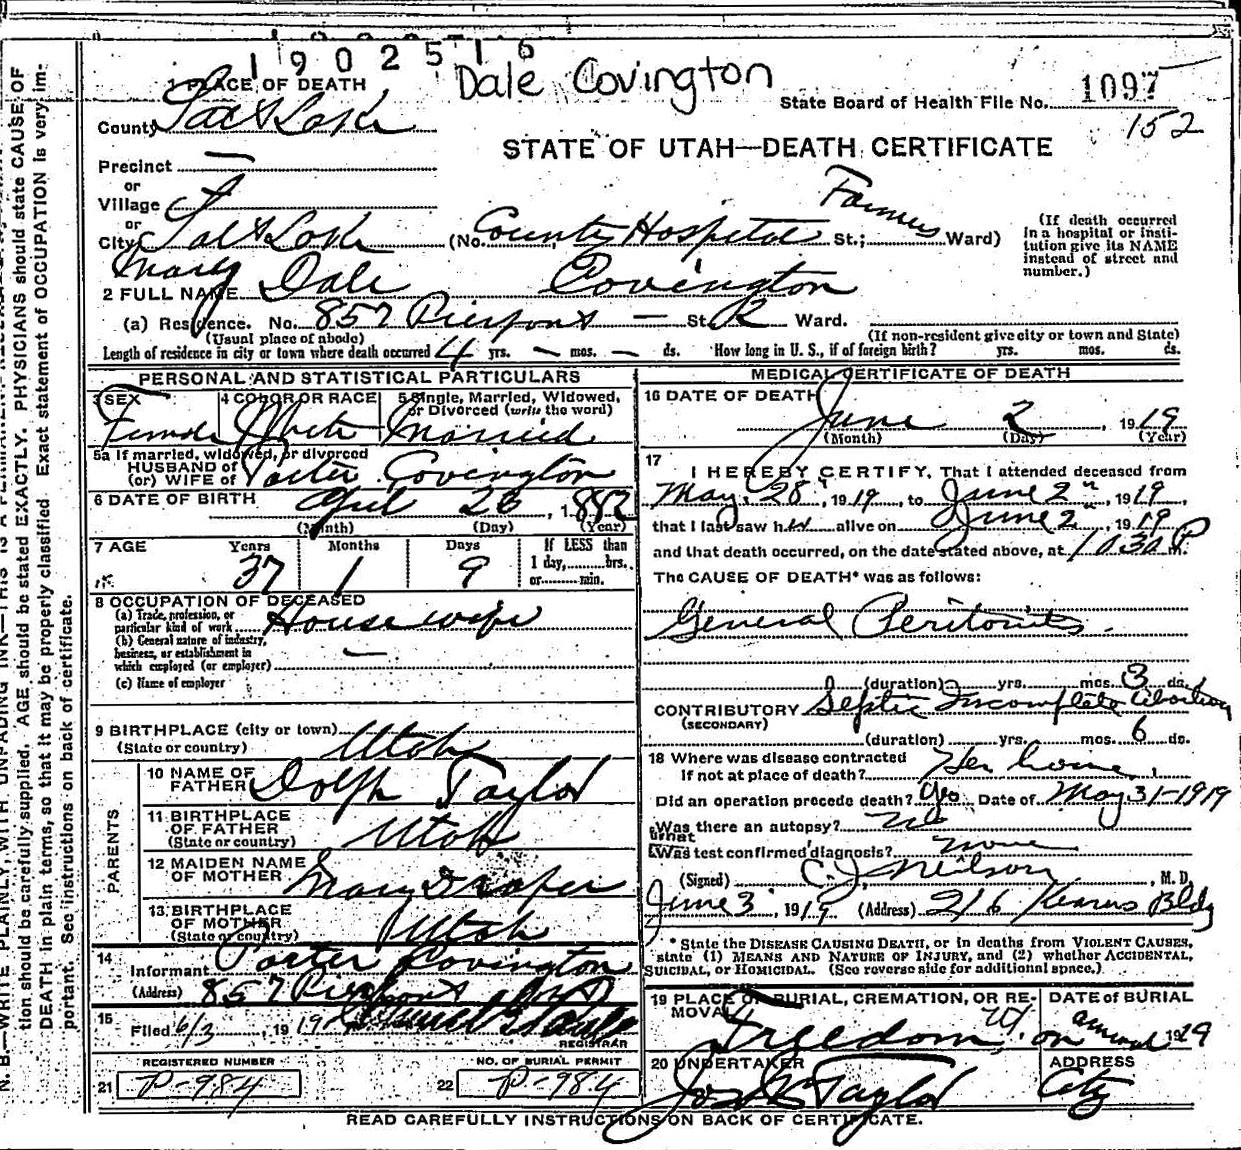 1902516
Dale Covington
1 PLACE OF DEATH
State Board of Health File No. 1097
152
County Salt Lake
STATE OF UTAH—DEATH CERTIFICATE
Precinct —
or
Village
or
City Salt Lake (No. County Hospital St.; Ward)
Farmers
(If death occurred in a hospital or institution give its NAME instead of street and number.)
Mary
2 FULL NAME Dale Covington
(a) Residence. No. 857 Pierpont — St. 2 Ward.
(Usual place of abode) (If non-resident give city or town and State)
Length of residence in city or town where death occurred 4 yrs. — mos. — ds. How long in U. S., if of foreign birth? yrs. mos. ds.
PERSONAL AND STATISTICAL PARTICULARS
3 SEX 4 COLOR OR RACE 5 Single, Married, Widowed, or Divorced (write the word)
Female White Married
5a If married, widowed, or divorced
HUSBAND of
(or) WIFE of Porter Covington
6 DATE OF BIRTH April 26, 1882
(Month) (Day) (Year)
7 AGE Years Months Days If LESS than
37 1 9 1 day, hrs.
or min.
8 OCCUPATION OF DECEASED
(a) Trade, profession, or
particular kind of work House wife
(b) General nature of industry,
business, or establishment in —
which employed (or employer)
(c) Name of employer
9 BIRTHPLACE (city or town)
(State or country) Utah
PARENTS
10 NAME OF
FATHER Dolph Taylor
11 BIRTHPLACE
OF FATHER
(State or country) Utah
12 MAIDEN NAME
OF MOTHER Mary Draper
13 BIRTHPLACE
OF MOTHER
(State or country) Utah
14
Informant Porter Covington
(Address) 857 Pierpont
15
Filed 6/3, 1919
REGISTRAR
REGISTERED NUMBER NO. OF BURIAL PERMIT
21 P-984 22 P-984
MEDICAL CERTIFICATE OF DEATH
16 DATE OF DEATH
June 2, 1919
(Month) (Day) (Year)
17
I HEREBY CERTIFY, That I attended deceased from
May 28", 1919, to June 2", 1919,
that I last saw her alive on June 2", 1919
and that death occurred, on the date stated above, at 1030 P m.
The CAUSE OF DEATH* was as follows:
General Peritonitis.
(duration) yrs. mos. 3 ds.
CONTRIBUTORY Septic Incomplete Abortion
(SECONDARY)
(duration) yrs. mos. 6 ds.
18 Where was disease contracted
if not at place of death? Her home
Did an operation precede death? Yes Date of May 31-1919
Was there an autopsy? No
What
Was test confirmed diagnosis? none
(Signed) C. J. Neilson, M. D.
June 3, 1919 (Address) 216 Kearns Bldg
* State the DISEASE CAUSING DEATH, or in deaths from VIOLENT CAUSES,
state (1) MEANS AND NATURE OF INJURY, and (2) whether ACCIDENTAL,
SUICIDAL, or HOMICIDAL. (See reverse side for additional space.)
19 PLACE OF BURIAL, CREMATION, OR RE-
MOVAL DATE of BURIAL
Freedom, Ut. on arrival 1919
20 UNDERTAKER ADDRESS
Jos Wm Taylor City
READ CAREFULLY INSTRUCTIONS ON BACK OF CERTIFICATE.
N. B.—WRITE PLAINLY, WITH UNFADING INK—THIS IS A PERMANENT
tion should be carefully supplied. AGE should be stated EXACTLY. PHYSICIANS should state CAUSE OF
DEATH in plain terms, so that it may be properly classified. Exact statement of OCCUPATION is very im-
portant. See instructions on back of certificate.